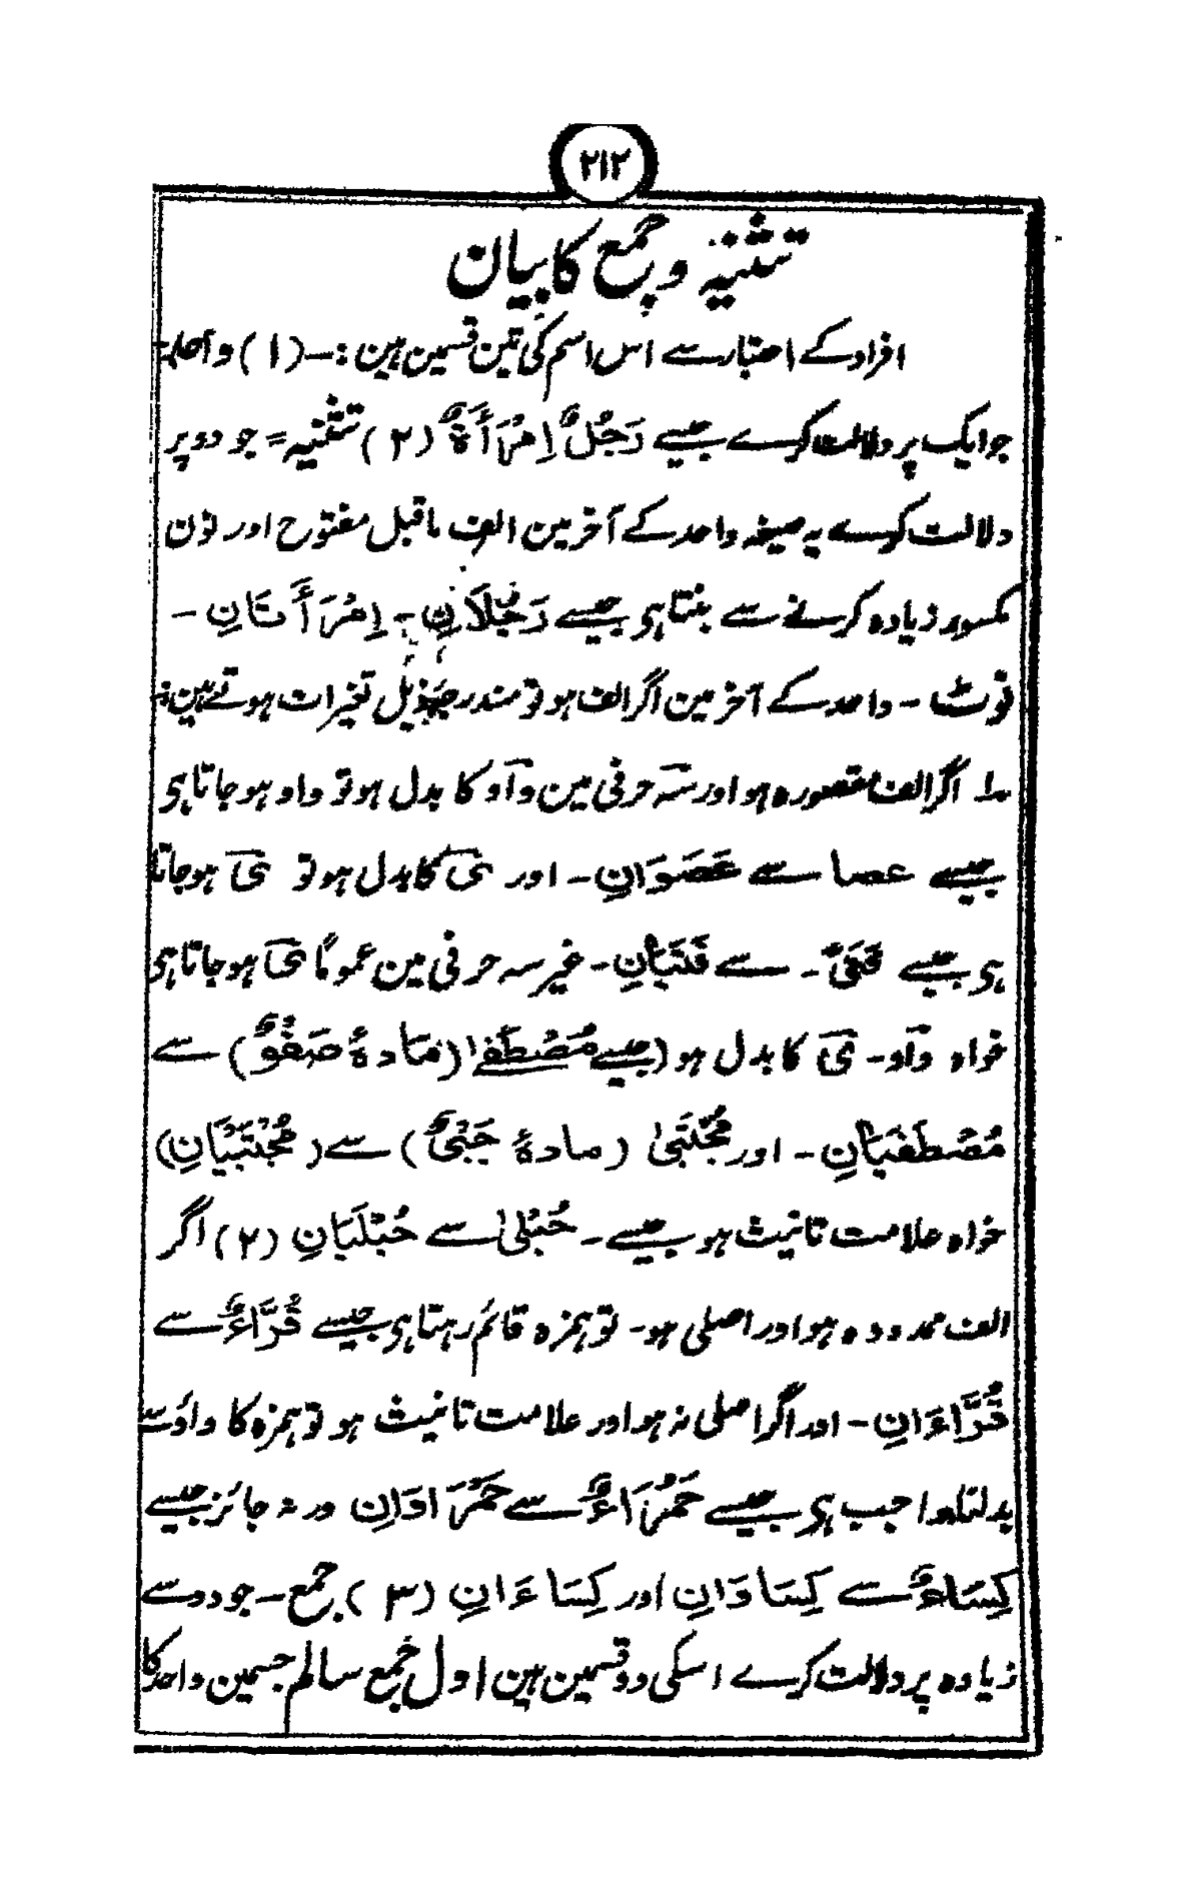 ۲۱۲
تثنیہ وجمع کا بیان
افراد کے اعتبار سے اس اسم کی تین قسمین ہین :– (۱) واحد =
جو ایک پر دلالت کرے جیسے رَجُلٌ اِمْرَأَةٌ (۲) تثنیہ = جو دو پر
دلالت کرے یہ صیغہ واحد کے آخر مین الف ماقبل مفتوح اور نون
مکسور زیادہ کرنے سے بنتا ہی جیسے رَجُلَانِ - اِمْرَأَتَانِ -
نوٹ - واحد کے آخر مین اگر الف ہو تو مندرجہ ذیل تغیرات ہوتے ہین :
۱ اگر الف مقصورہ ہو اور سہ حرفی مین واو کا بدل ہو تو واو ہو جاتا ہی
جیسے عصا سے عَصَوَانِ - اور ی کا بدل ہو تو ی ہو جاتا
ہی جیسے فَتًی - سے فَتَیَانِ - غیر سہ حرفی مین عموماً ی ہو جاتا ہی
خواہ واو - ی کا بدل ہو (جیسے مُصْطَفٰے (مادۂ صَفْوٌ) سے
مُصْطَفَیَانِ - اور مُجْتَبٰی (مادۂ جَبْیٌ) سے (مُجْتَبَیَانِ)
خواہ علامت تانیث ہو جیسے - حُبْلٰی سے حُبْلَیَانِ (۲) اگر
الف ممدودہ ہو اور اصلی ہو - تو ہمزہ قائم رہتا ہی جیسے قُرَّاءٌ سے
قُرَّاءَانِ - اور اگر اصلی نہ ہو اور علامت تانیث ہو تو ہمزہ کا واؤ سے
بدلنا واجب ہی جیسے حَمْرَاءُ سے حَمْرَاوَانِ ورنہ جائز جیسے
کِسَاءٌ سے کِسَاوَانِ اور کِسَاءَانِ (۳) جمع - جو دو سے
زیادہ پر دلالت کرے اسکی دو قسمین ہین اول جمع سالم جسمین واحد کا